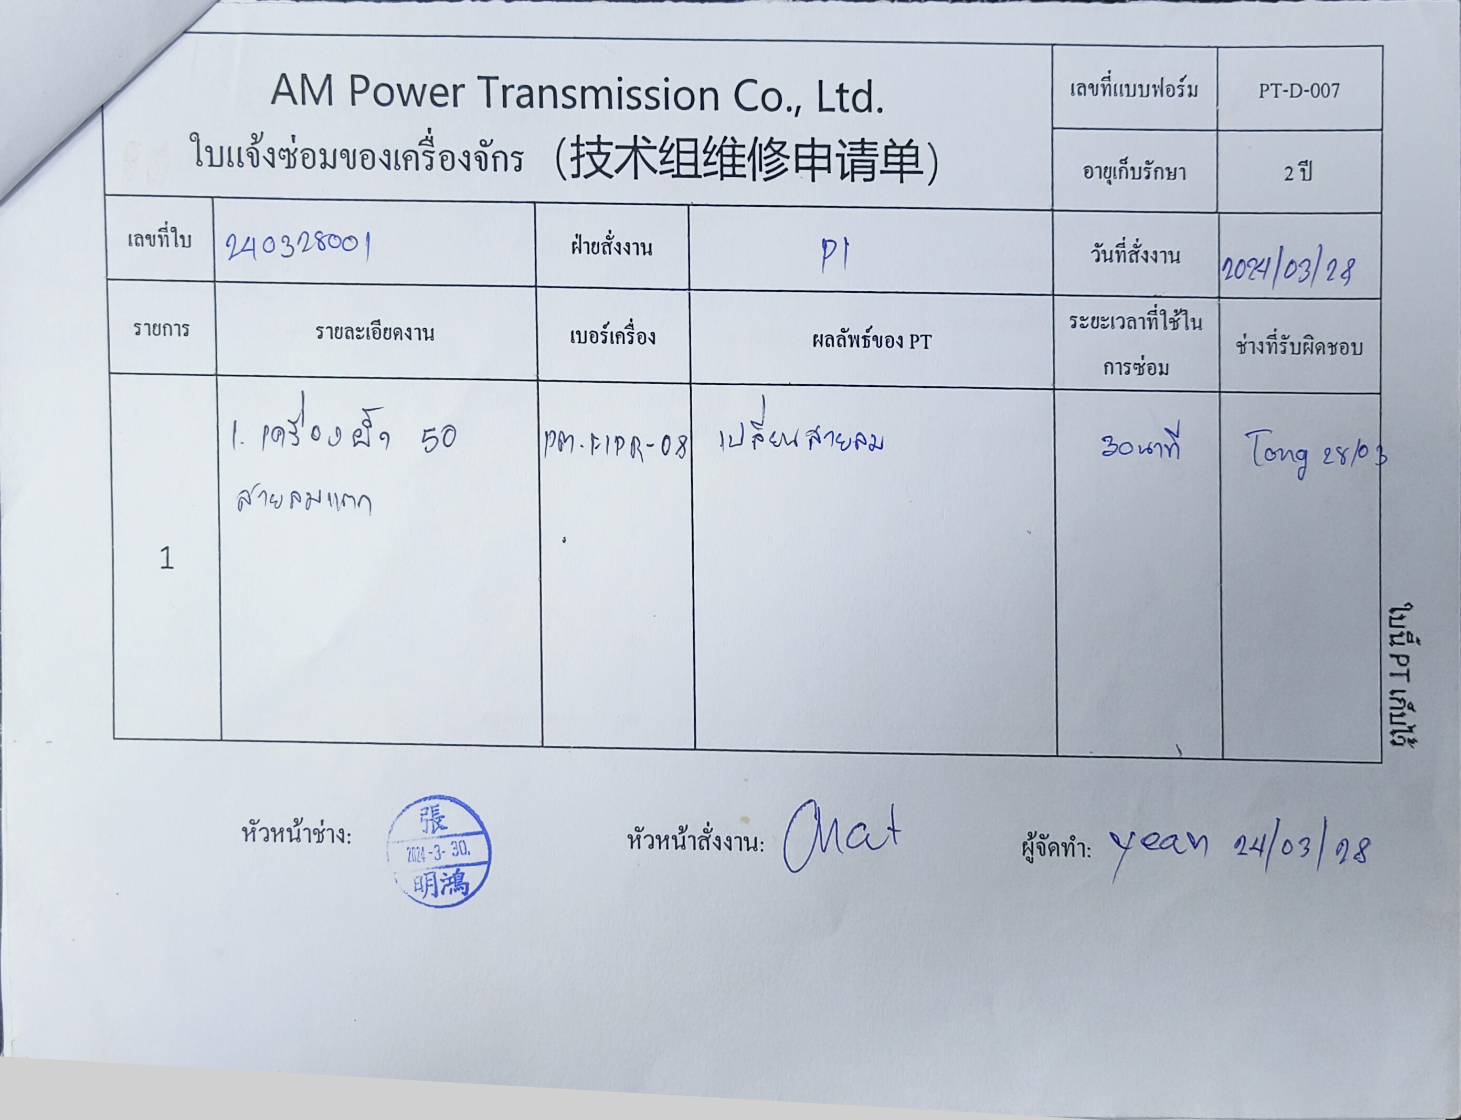 AM Power Transmission Co., Ltd.
ใบแจ้งซ่อมของเครื่องจักร (技术组维修申请单)
เลขที่แบบฟอร์ม PT-D-007
อายุเก็บรักษา 2 ปี
เลขที่ใบ 240328001 ฝ่ายสั่งงาน P1 วันที่สั่งงาน 2024/03/28
รายการ รายละเอียดงาน เบอร์เครื่อง ผลลัพธ์ของ PT ระยะเวลาที่ใช้ใน ช่างที่รับผิดชอบ
การซ่อม
1. เครื่อง 50 PM-FIPR-08 เปลี่ยนสายลม 30นาที Tong 28/03
สายลมแตก
1
ใบนี้ PT เก็บไว้
หัวหน้าช่าง: 張 2024-3-30. 明鴻
หัวหน้าสั่งงาน: ผู้จัดทำ: yean 24/03/28